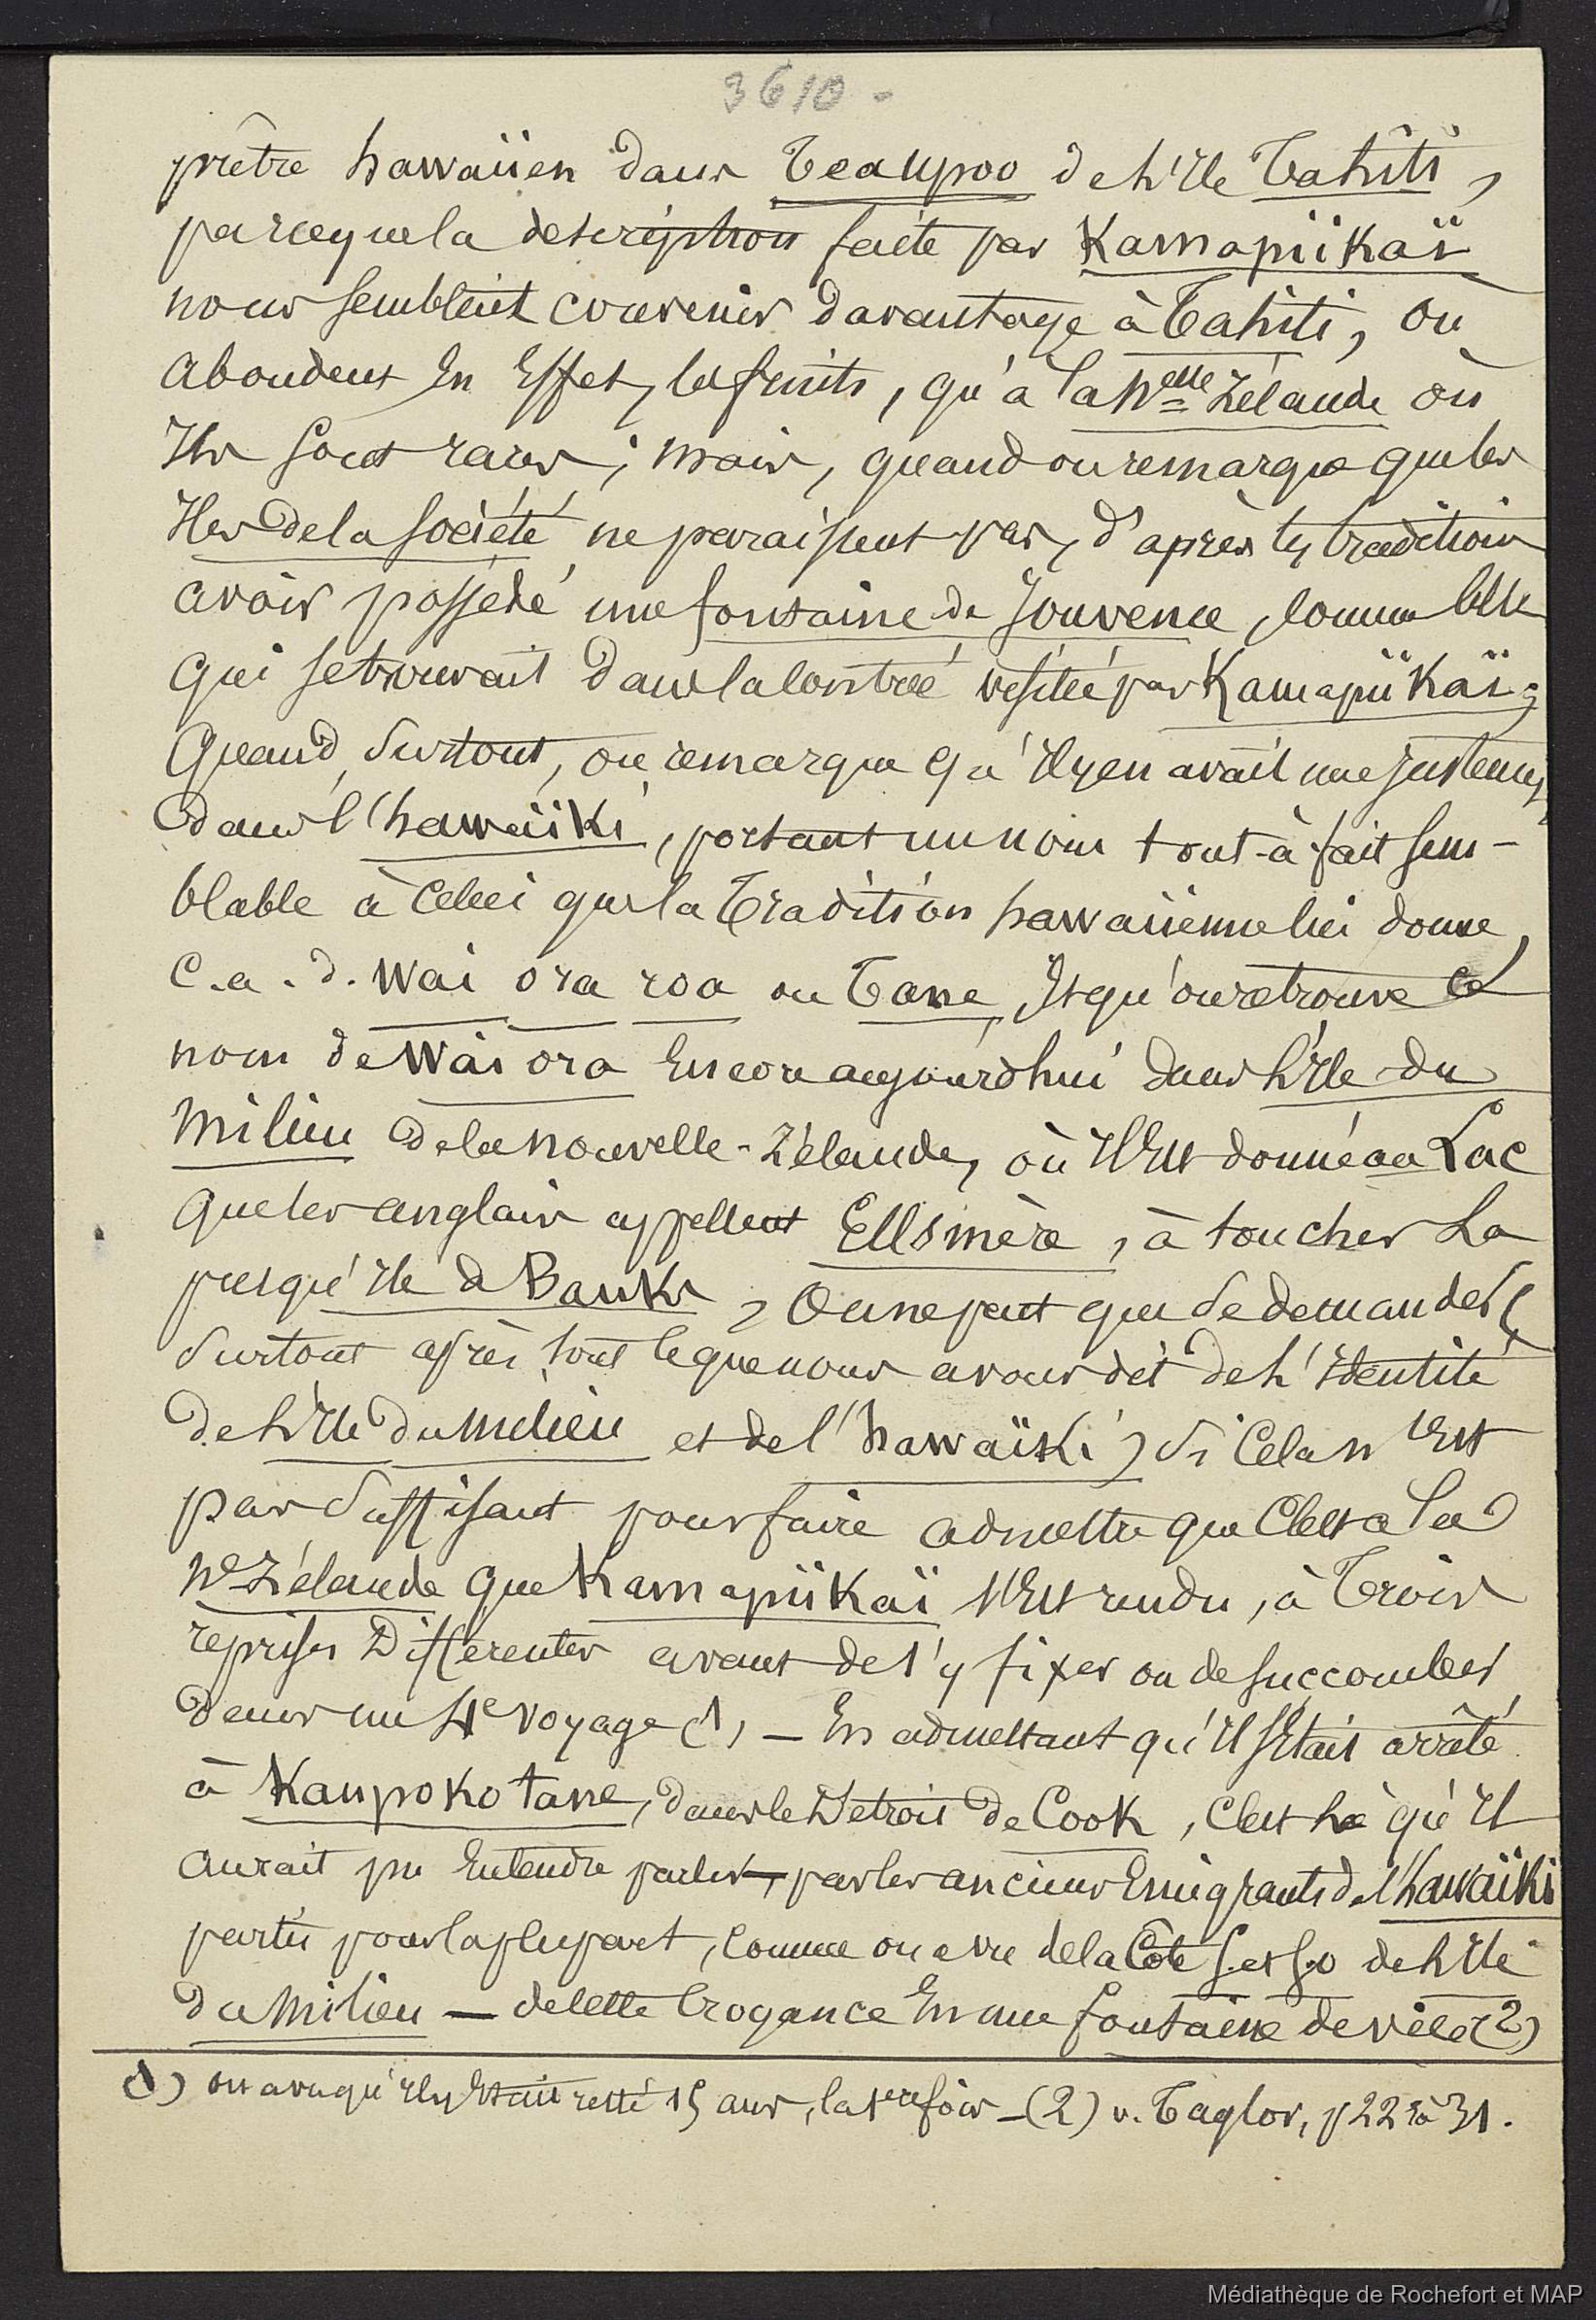 3610 -
prêtre hawaiien dans Teaupoo de l'Ile Tahiti,
parceque la description faite par Kamapiikaï
nous semblait convenir davantage à Tahiti, où
abondent En Effet, les fruits, qu'à la Nelle Zélande où
Ils sont rares; mais, quand on remarque que les
Iles de la Société ne paraissent pas, d'après les traditions
avoir possédé une fontaine de Jouvence, comme celle
qui se trouvait dans la contrée visitée par Kamapiikaï;
Quand, surtout, on remarque qu'Il y en avait une justement
dans l'hawaïiki, portant un nom tout-à-fait sem-
blable à celui que la Tradition hawaiienne lui donne,
C.a.d. Wai ora roa ou Tane, Et qu'on retrouve ce
nom de Wai ora Encore aujourd'hui dans l'Ile du
milieu de la nouvelle-Zélande, où Il Est donné au Lac
que les anglais appellent Ellsmère, à toucher La
presqu'Ile de Banks, On ne peut que se demander (
surtout après tout ce que nous avons dit de l'Identité
de l'Ile du Milieu et de l'hawaïki) si Cela n'Est
pas suffisant pour faire admettre que C'est à la
Ne Zélande que Kamapiikaï s'Est rendu, à Trois
reprises Différentes avant de s'y fixer ou de succomber
dans un 4e voyage (1) — En admettant qu'Il s'Etait arrêté
à Kaupokotane, dans le Détroit de Cook, C'est là qu'Il
aurait pu Entendre parler, par les anciens Emigrants de l'hawaïki
partis pour la plupart, comme on a vu de la Côte S. et S.O de l'Ile
du Milieu — de cette Croyance En une fontaine de vie (2)
(1) on a vu qu'Il y Etait resté 15 ans, la 1ere fois — (2) v. Taylor, p 22 à 31.
Médiathèque de Rochefort et MAP